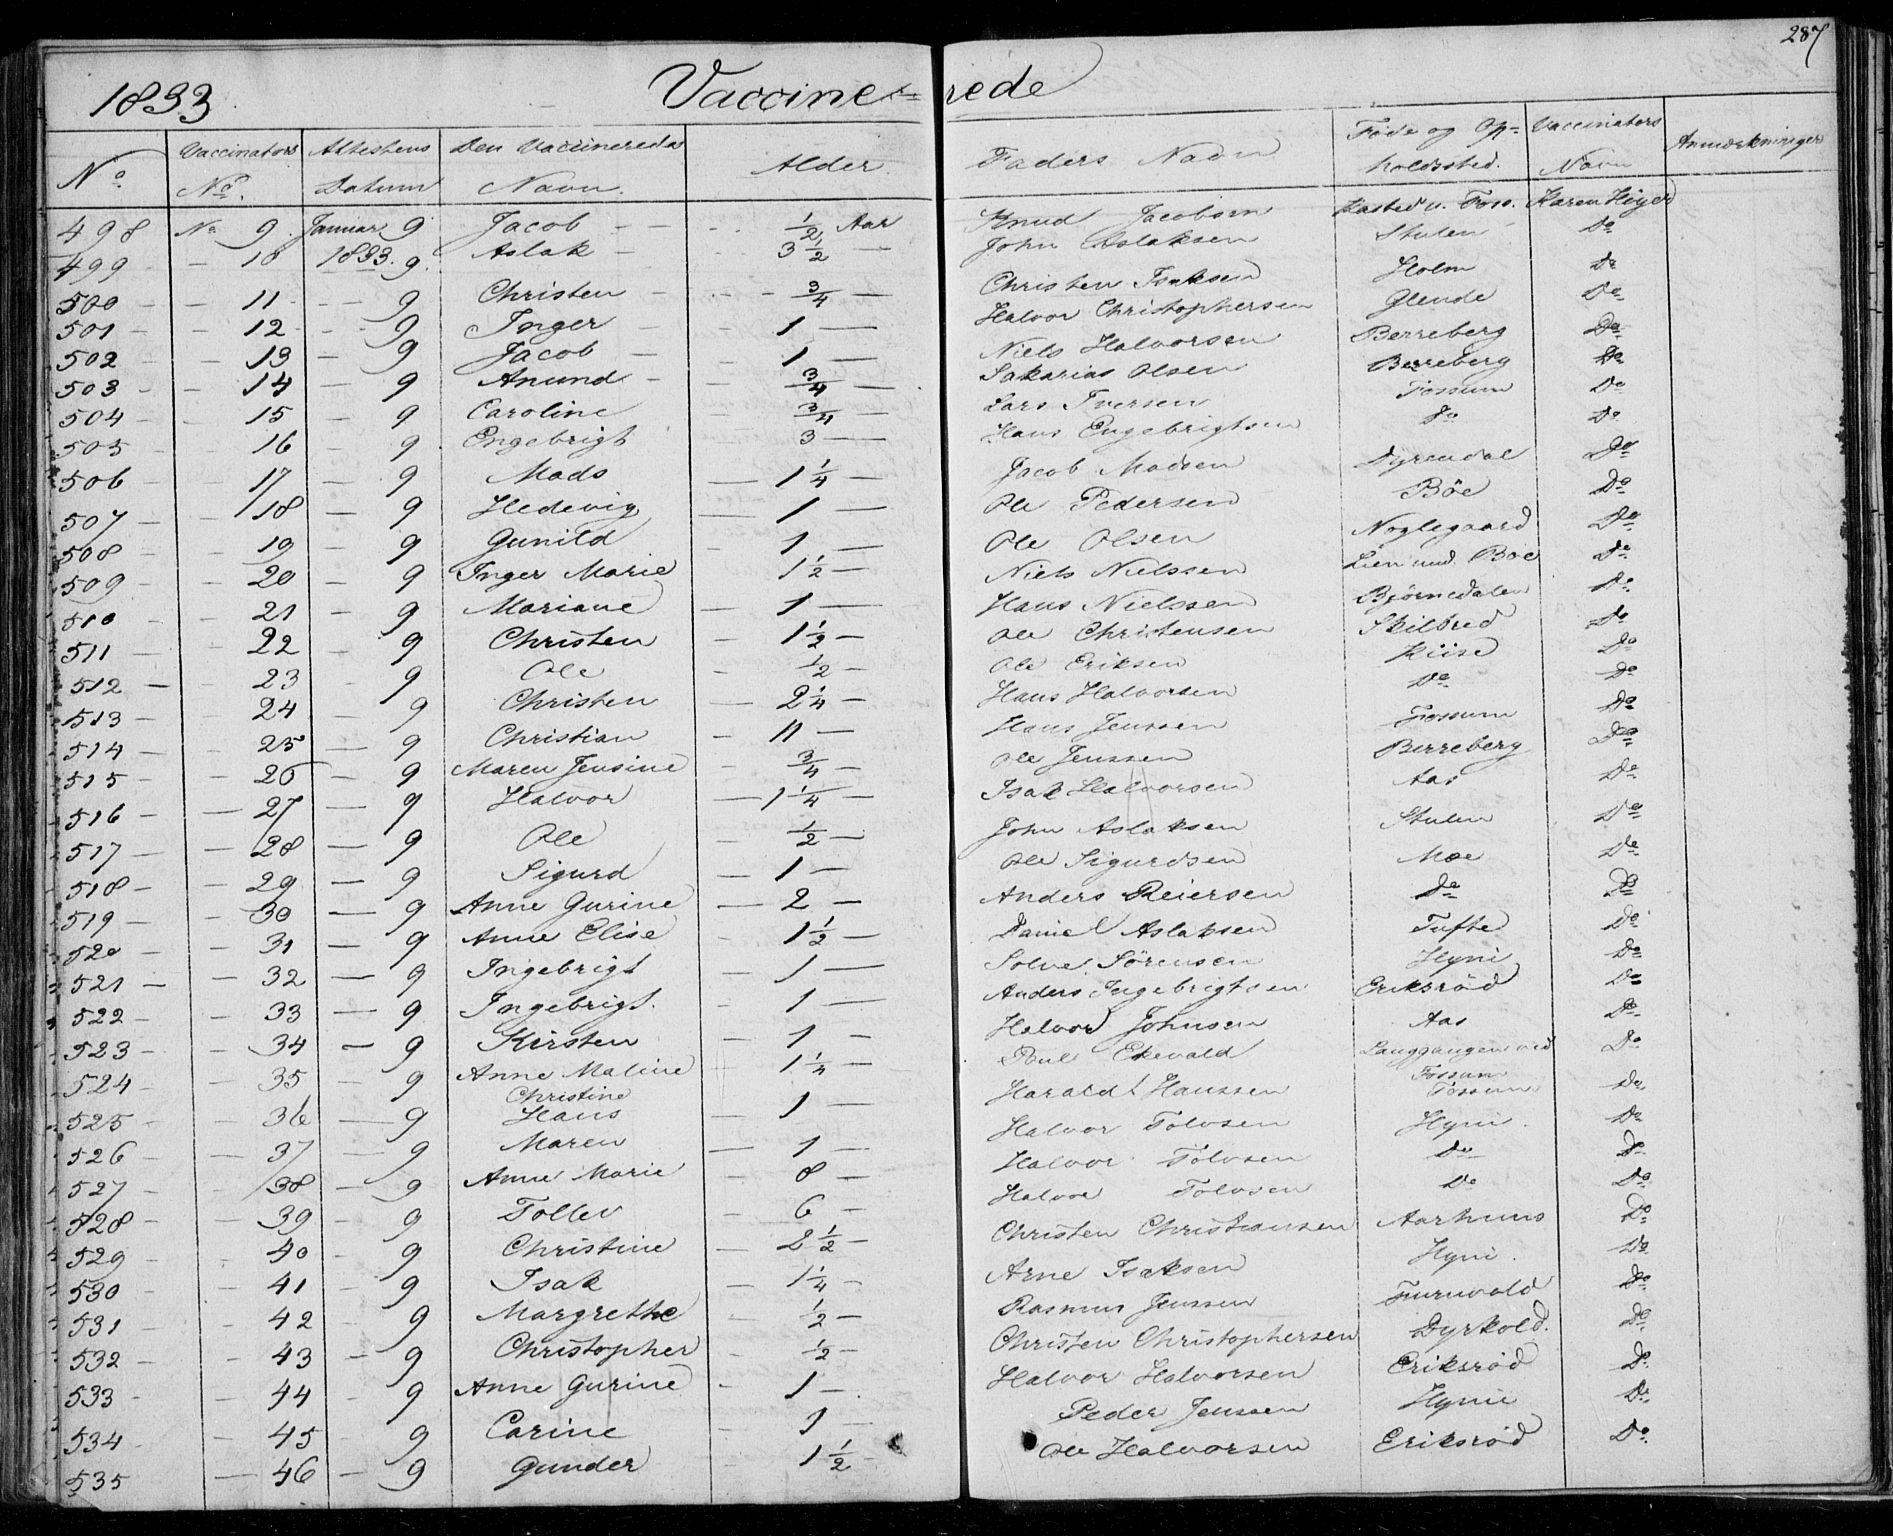 287
1833 Vaccinerede
No. Vaccinators No. Attestens Datum Den Vaccineredes Navn. Alder. Faders Navn Føde og Opholdssted. Vaccinators Navn Anmærkninger
498 No. 9. Januar 9 Jacob - - ½ Aar Knud Jacobsen Foss. Karen Høyer
499 - 10 1833. 9. Aslak - 3½ - John Aslaksen Stulen Do
500 - - 11 - - 9 Christen - ¾ - Christen Isaksen Holm Do
501 - - 12 - - 9 Inger - 1 - Halvor Christophersen Glende Do
502 - 13 - 9 Jacob - 1 - Niels Halvorsen Berreberg Do
503 - - 14 - 9 Anund - ¾ - Sakarias Olsen Berreberg Do
504 - - 15 - 9 Caroline - ¾ - Lars Iversen Fossum Do
505 - - 16 - 9. Engebrigt 3 - Hans Engebrigtsen Do Do
506 - - 17 - 9 Mads - 1¼ - Jacob Madsen Dyrendal Do
507 - - 18 - 9 Hedevig - 1 - Ole Pedersen Böe Do
508 - - 19 - 9 Gunild - 1 - Ole Olsen Noglegaard Do
509 - - 20 - 9 Inger Marie - 1½ - Niels Nielssen Lien und. Böe Do
510 - - 21 - 9 Mariane - 1 - Hans Nielssen Björnedalen Do
511 - - 22 - 9 Christen - 1½ - Ole Christensen Skilbred Do
512 - - 23 - 9 Ole - ½ - Ole Eriksen Kiise Do
513 - - 24 - 9 Christen - 2¼ - Hans Halvorsen Do Do
514 - - 25 - 9 Christian - 11 - Hans Jenssen Fossum Do
515 - - 26 - 9 Maren Jensine - ¾ - Ole Jenssen Berreberg Do
516 - - 27 - 9 Halvor - 1¼ - Isak Halvorsen Aas Do
517 - - 28 - 9 Ole ½ - John Aslaksen Stulen Do
518 - - 29 - 9 Sigurd - 1 - Ole Sigurdsen Moe Do
519 - - 30 - 9 Anne Gurine - 2 - Anders Reiersen Do Do
520 - - 31 - 9 Anne Elise - 1½ - Daniel Aslaksen Tufte Do
521 - - 32 - 9 Ingebrigt - 1 - Solve Sörensen Hyni Do
522 - - 33 - 9 Ingebrigt. - 1 - Anders Ingebrigtsen Eriksröd Do
523 - - 34 - 9 Kirsten - 1 - Halvor Johnsen Aas Do
524 - 35 - 9 Anne Maline Christine 1¼ - Poul Ekevald Langgangen ved Fossum Do
525 - - 36 - 9 Hans - 1 - Harald Hanssen Fossum Do
526 - - 37 - 9 Maren - 1 - Halvor Tolvsen Hyni. Do
527 - - 38 - 9 Anne Marie - 8 - Halvor Tolvsen Do Do
528 - - 39 - 9 Tollev - 6 - Halvor Tolvsen Do Do
529 - - 40 - 9 Christine - 2½ - Christen Christiansen Aarhuus Do
530 - - 41 - 9 Isak - 1¼ - Arne Isaksen Hyni. Do
531 - - 42 - 9 Margrethe - ½ - Rasmus Jenssen Do
532 - - 43 - 9 Christopher - ½ - Christen Christophersen Dyrkold. Do
533 - - 44 - 9 Anne Gurine - 1 - Halvor Halvorsen Eriksröd Do
534 - - 45 - 9 Carine - 1 - Peder Jenssen Hynie Do
535 - 46 - 9 Gunder - 1½ - Ole Halvorsen Eriksröd Do